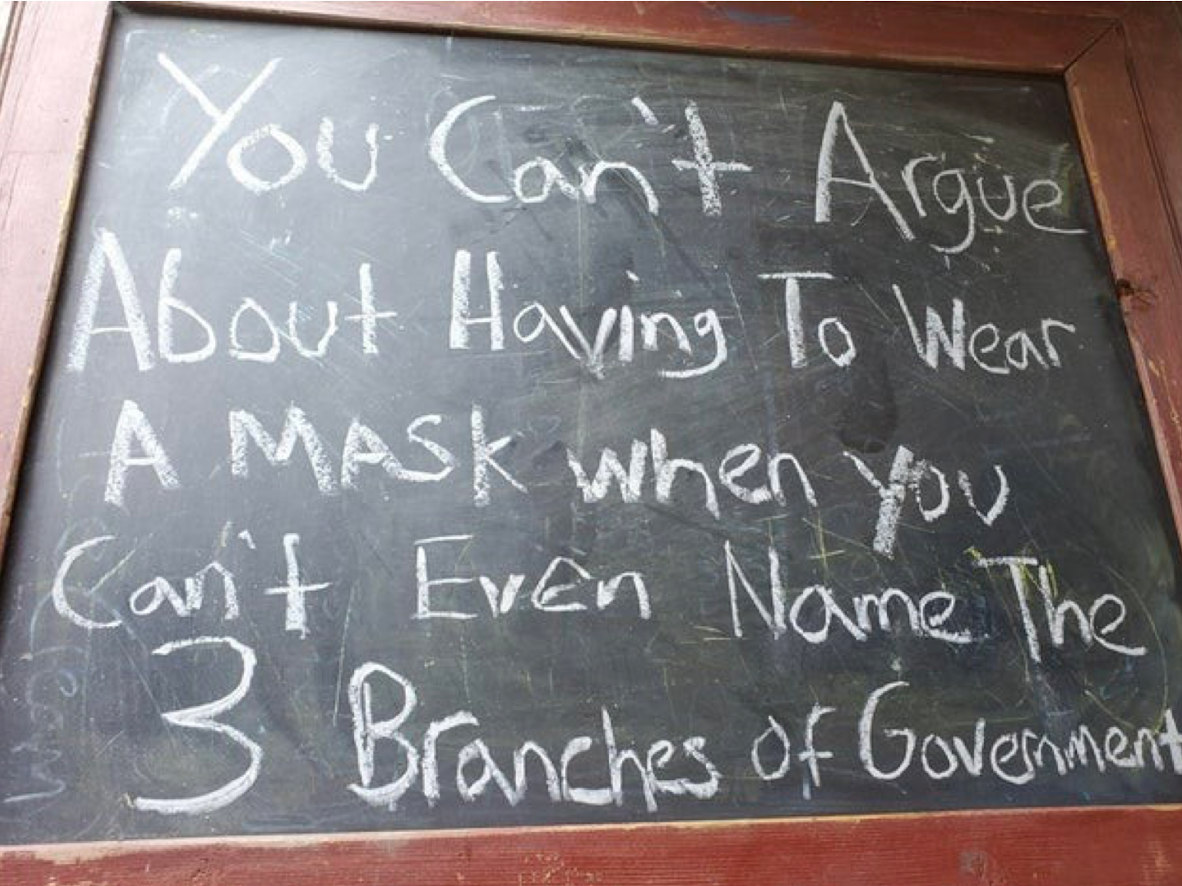 You Can't Argue
About Having To Wear
A MASK when you
Can't Even Name The
3 Branches of Government